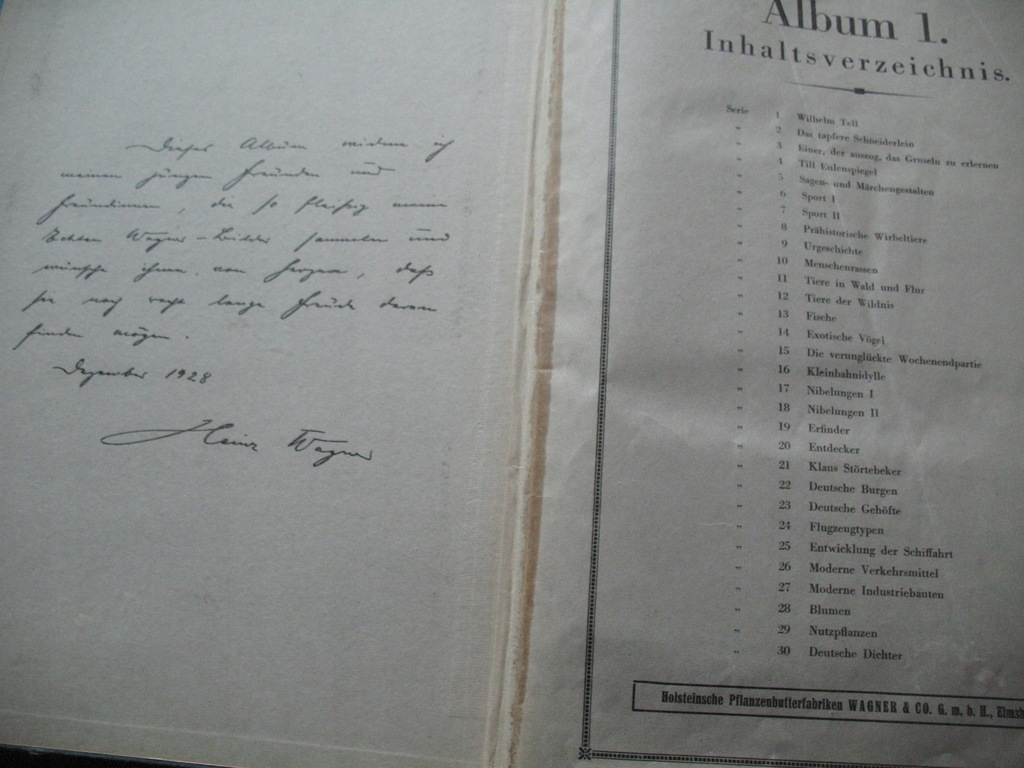 Dieses Album widme ich
meinen jungen Freunden und
Freundinnen, die so fleißig meine
Echten Wagner-Bilder sammeln und
wünsche ihnen von Herzen, daß
sie noch recht lange Freude daran
finden mögen.
Dezember 1928
Heinz Wagner
Album 1.
Inhaltsverzeichnis.
Serie 1 Wilhelm Tell
" 2 Das tapfere Schneiderlein
" 3 Einer, der auszog, das Gruseln zu erlernen
" 4 Till Eulenspiegel
" 5 Sagen- und Märchengestalten
" 6 Sport I
" 7 Sport II
" 8 Prähistorische Wirbeltiere
" 9 Urgeschichte
" 10 Menschenrassen
" 11 Tiere in Wald und Flur
" 12 Tiere der Wildnis
" 13 Fische
" 14 Exotische Vögel
" 15 Die verunglückte Wochenendpartie
" 16 Kleinbahnidylle
" 17 Nibelungen I
" 18 Nibelungen II
" 19 Erfinder
" 20 Entdecker
" 21 Klaus Störtebeker
" 22 Deutsche Burgen
" 23 Deutsche Gehöfte
" 24 Flugzeugtypen
" 25 Entwicklung der Schiffahrt
" 26 Moderne Verkehrsmittel
" 27 Moderne Industriebauten
" 28 Blumen
" 29 Nutzpflanzen
" 30 Deutsche Dichter
Holsteinsche Pflanzenbutterfabriken WAGNER & CO. G. m. b. H., Elmsh